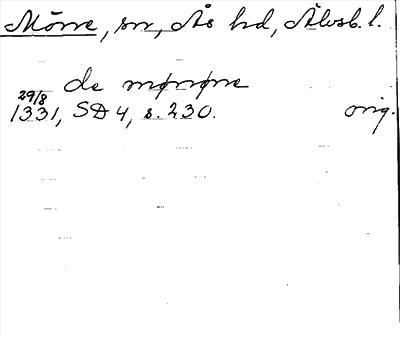 Mörre, sn, Ås hd, Älvsb. l.
de mørørre
29/8
1331, SD 4, s. 230. orig.